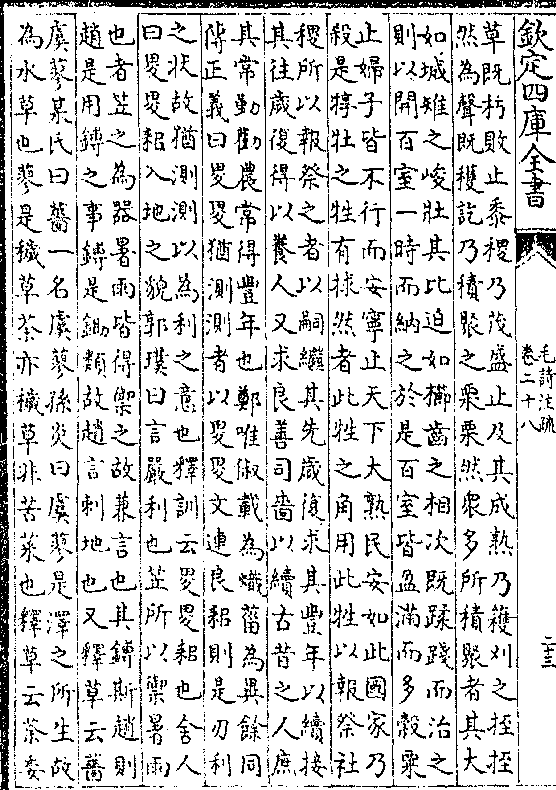 欽定四庫全書
毛詩注疏
卷二十八
二三
草既朽敗止黍稷乃茂盛止及其成熟乃穫刈之挃挃
然為聲既穫訖乃積聚之栗栗然衆多所積聚者其大
如城雉之峻壯其比迫如櫛齒之相次既蹂踐而治之
則以開百室一時而納之於是百室皆盈滿而多穀粟
止婦子皆不行而安寧止天下大熟民安如此國家乃
殺是犉牡之牲有捄然者此牲之角用此牲以報祭社
稷所以報祭之者以嗣繼其先歲復求其豐年以續接
其往歲復得以養人又求良善司嗇以續古昔之人庶
其常勤勸農常得豐年也鄭唯俶載為熾菑為異餘同
傳正義曰畟畟猶測測者以畟畟文連良耜則是刃利
之狀故猶測測以為利之意也釋訓云畟畟耜也舍人
曰畟畟耜入地之貌郭璞曰言嚴利也笠所以禦暑雨
也者笠之為器暑雨皆得禦之故兼言也其鎛斯趙則
趙是用鎛之事鎛是鋤類故趙言刺地也又釋草云薔
虞蓼某氏曰薔一名虞蓼孫炎曰虞蓼是澤之所生故
為水草也蓼是穢草荼亦穢草非苦菜也釋草云荼委